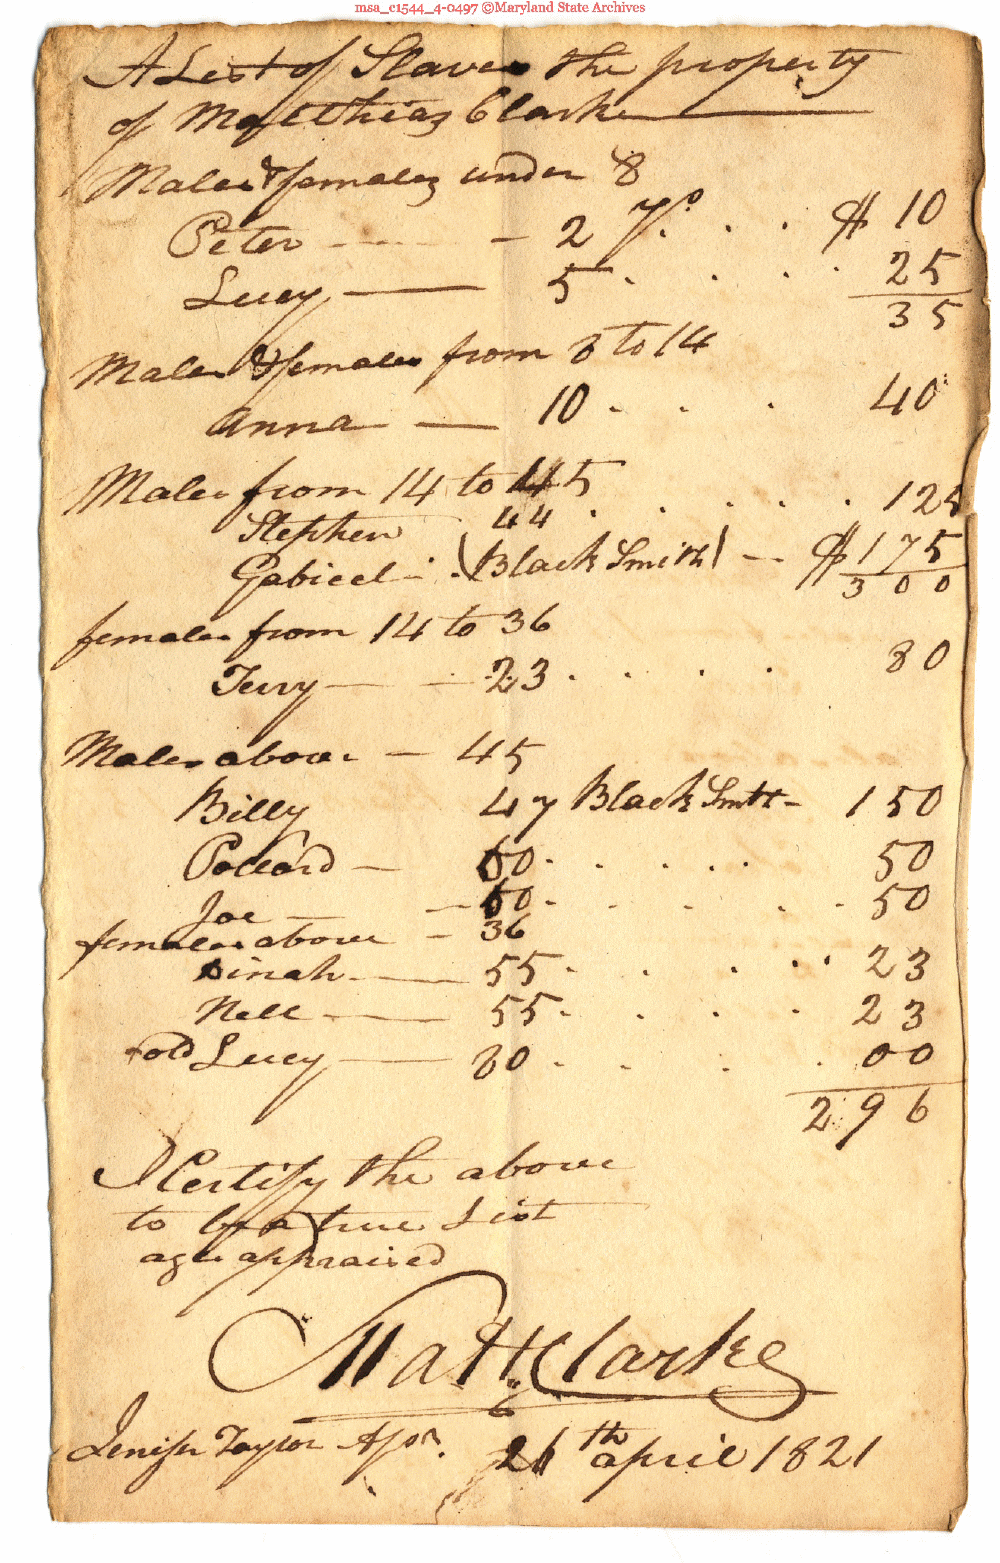 msa_c1544_4-0497 ©Maryland State Archives
A List of Slaves the property
of Matthias Clarke
Males & females under 8
Peter 2 yo. $ 10
Lucy 5 25
35
Males & females from 8 to 14
Anna 10 40
Males from 14 to 45
Stephen 44 125
Gabieel (Black Smith) $ 175
300
females from 14 to 36
Terry 23 80
Males above 45
Billy 47 Black Smth 150
Pollard 60 50
Joe 60 50
females above 36
Dinah 55 23
Nell 55 23
old Lucy 80 00
296
I Certify the above
to be a true List
appraised
Matt. Clarke
Jenifer Taylor Aspr. 26th april 1821